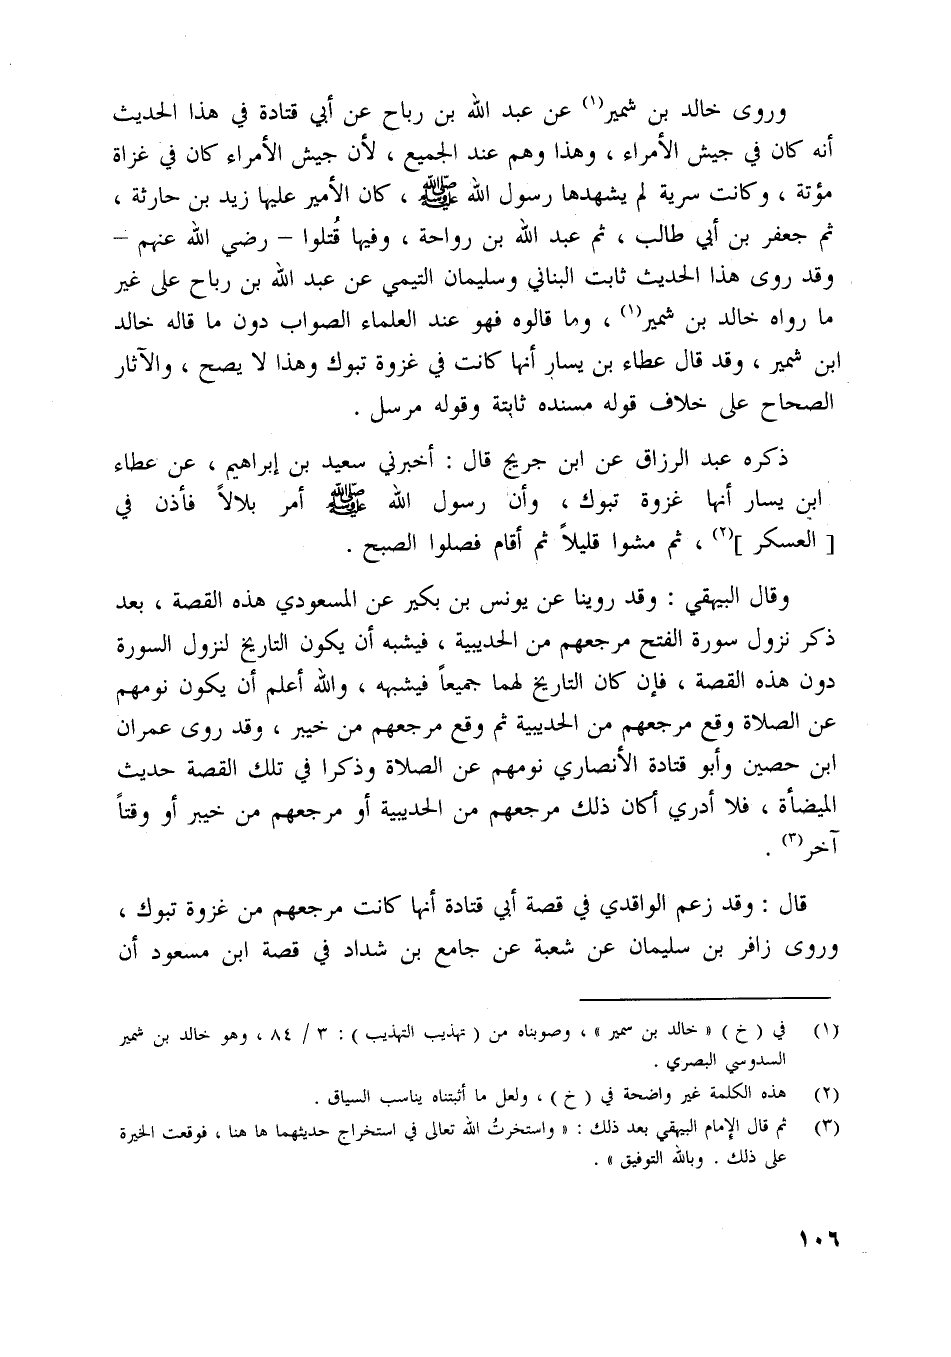 وروى خالد بن شمير(١) عن عبد الله بن رباح عن أبي قتادة في هذا الحديث
أنه كان في جيش الأمراء ، وهذا وهم عند الجميع ، لأن جيش الأمراء كان في غزاة
مؤتة ، وكانت سرية لم يشهدها رسول الله ﷺ ، كان الأمير عليها زيد بن حارثة ،
ثم جعفر بن أبي طالب ، ثم عبد الله بن رواحة ، وفيها قُتلوا – رضي الله عنهم –
وقد روى هذا الحديث ثابت البناني وسليمان التيمي عن عبد الله بن رباح على غير
ما رواه خالد بن شمير(١) ، وما قالوه فهو عند العلماء الصواب دون ما قاله خالد
ابن شمير ، وقد قال عطاء بن يسار أنها كانت في غزوة تبوك وهذا لا يصح ، والآثار
الصحاح على خلاف قوله مسنده ثابتة وقوله مرسل .
ذكره عبد الرزاق عن ابن جريج قال : أخبرني سعيد بن إبراهيم ، عن عطاء
ابن يسار أنها غزوة تبوك ، وأن رسول الله ﷺ أمر بلالاً فأذن في
[ العسكر ](٢) ، ثم مشوا قليلاً ثم أقام فصلوا الصبح .
وقال البيهقي : وقد روينا عن يونس بن بكير عن المسعودي هذه القصة ، بعد
ذكر نزول سورة الفتح مرجعهم من الحديبية ، فيشبه أن يكون التاريخ لنزول السورة
دون هذه القصة ، فإن كان التاريخ لهما جميعاً فيشبهه ، والله أعلم أن يكون نومهم
عن الصلاة وقع مرجعهم من الحديبية ثم وقع مرجعهم من خيبر ، وقد روى عمران
ابن حصين وأبو قتادة الأنصاري نومهم عن الصلاة وذكرا في تلك القصة حديث
الميضأة ، فلا أدري أكان ذلك مرجعهم من الحديبية أو مرجعهم من خيبر أو وقتاً
آخر(٣) .
قال : وقد زعم الواقدي في قصة أبي قتادة أنها كانت مرجعهم من غزوة تبوك ،
وروى زافر بن سليمان عن شعبة عن جامع بن شداد في قصة ابن مسعود أن
(١) في ( خ ) « خالد بن سمير » ، وصوبناه من ( تهذيب التهذيب ) : ٣ / ٨٤ ، وهو خالد بن شمير
السدوسي البصري .
(٢) هذه الكلمة غير واضحة في ( خ ) ، ولعل ما أثبتناه يناسب السياق .
(٣) ثم قال الإمام البيهقي بعد ذلك : « واستخرتُ الله تعالى في استخراج حديثهما ها هنا ، فوقعت الخيرة
على ذلك . وبالله التوفيق » .
١٠٦